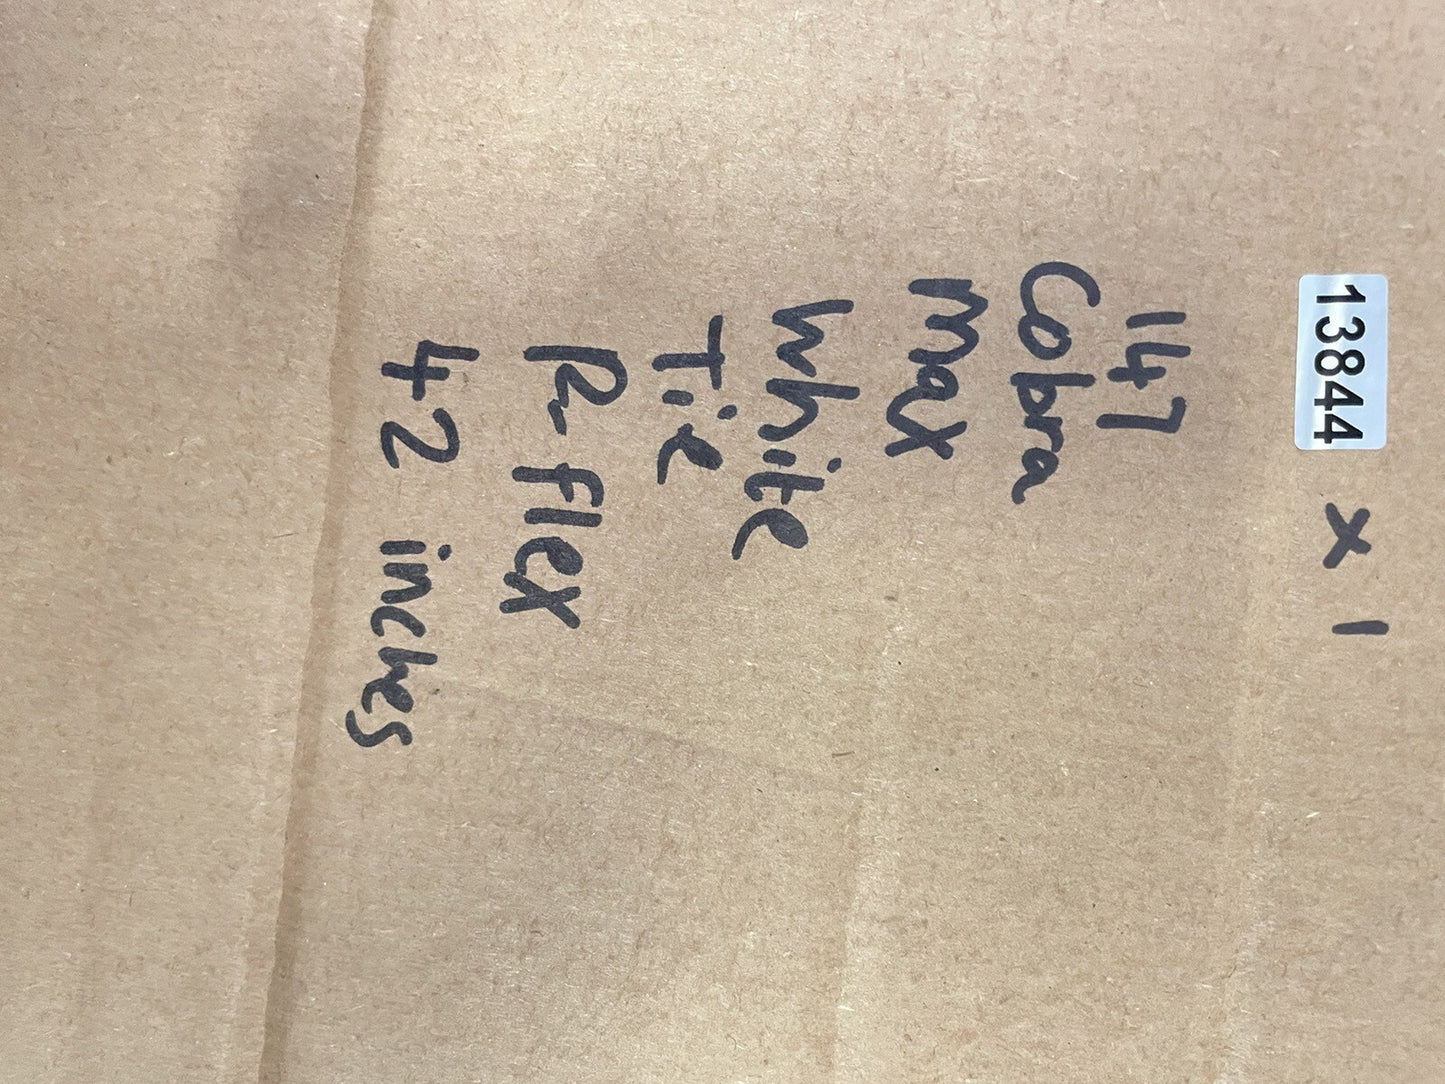 13844 x 1
147
Cobra
Max
White
Tie
R-flex
42 inches